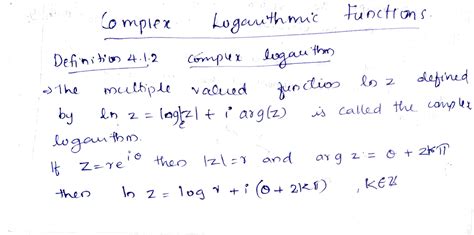 Complex Logarithmic Functions.
Definition 4.1.2 complex logarithm
→ The multiple valued function ln z defined
by ln z = log|z| + i arg(z) is called the complex
e
logarithm.
If z = re^{iθ} then |z| = r and arg z = θ + 2kπ
then ln z = log r + i (θ + 2kπ) , k∈ℤ